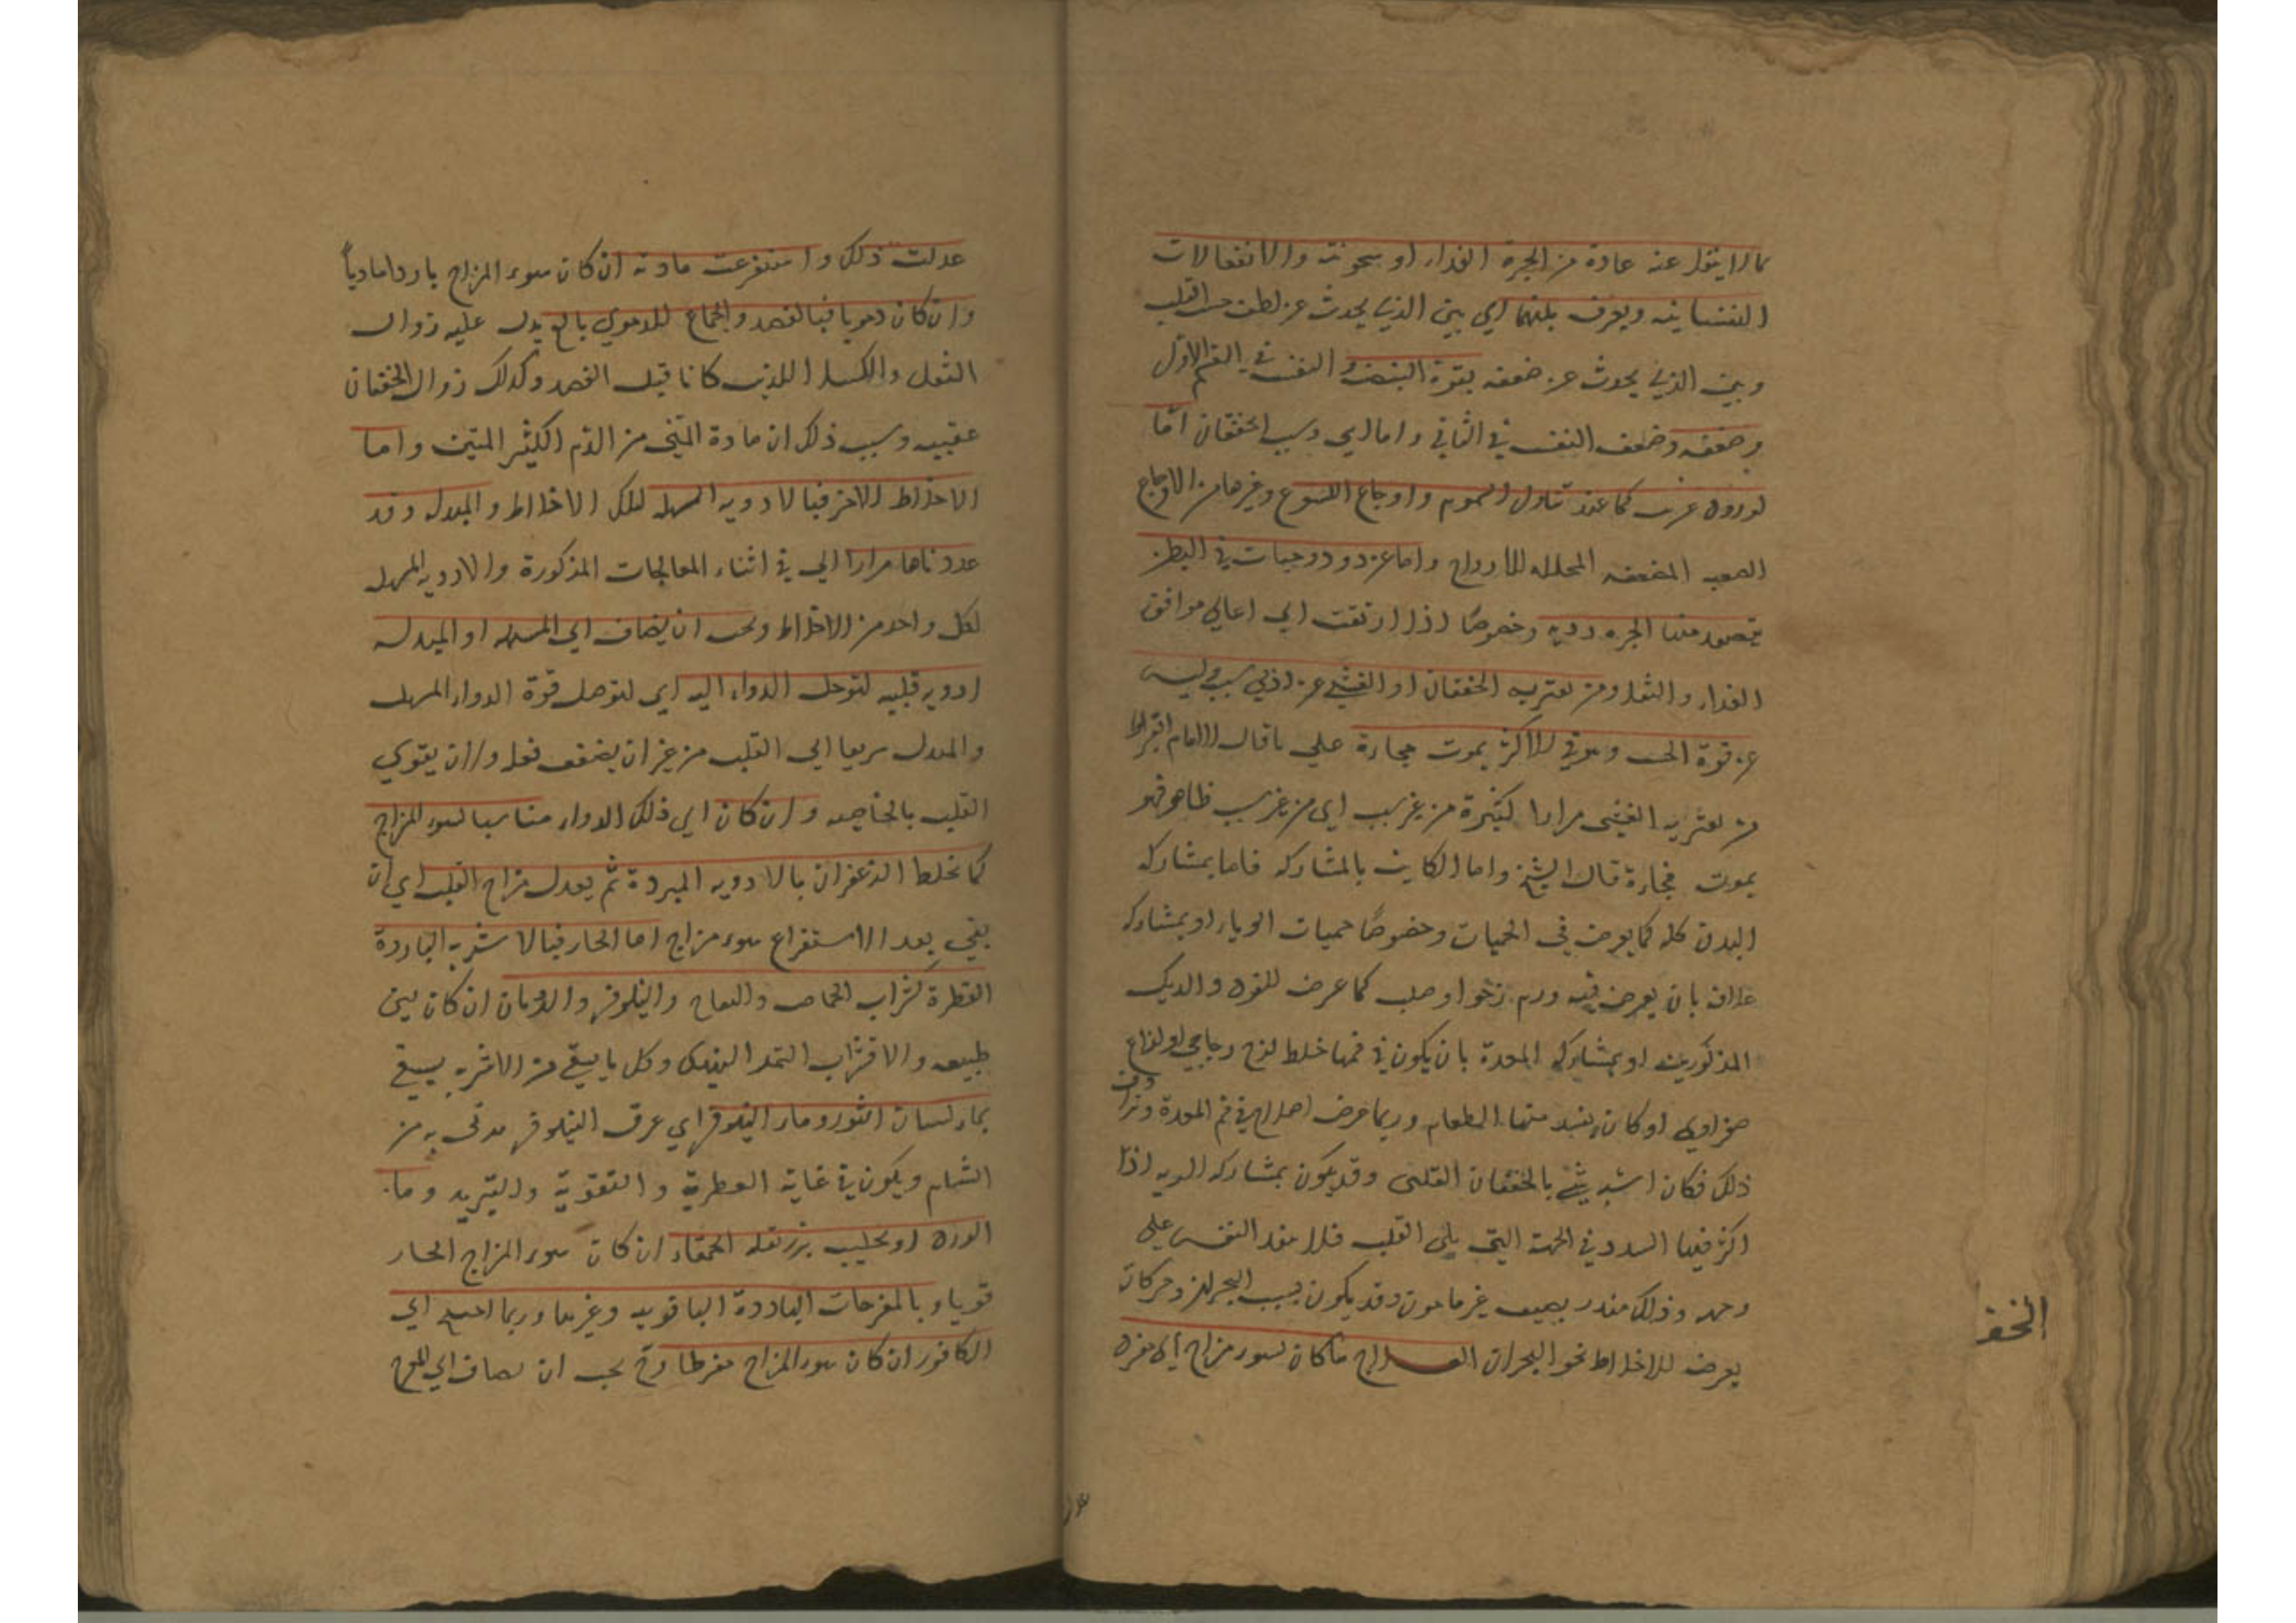 مما لا ينفعل عنه عادة من ابخرة الغذاء او سخونته والانفعالات
النفسانية ويعرف بينهما اي بين الذي يحدث عن لطف حس القلب
وبين الذي يحدث عن ضعفه بقوة النبض والنفس في القسم الاول
وضعفه وضعف النفس في الثاني واما لي وسبب الخفقان اما
لورود غريب كما عند تناول السموم واوجاع اللسوع وغيرها من الاوجاع
الصعبه المضعفه المحلله للارواح واما عن دود وحيات في البطن
يتصعد منها ابخره رديه وخصوصا اذا ارتقت الي اعالي مواقف
الغذاء والثفل ومن يعتريه الخفقان او الغشي عن ادني سبب وليس
عن قوة الحس وهو في الاكثر يموت فجارة علي ما قال الامام ابقراط
من يعتريه الغشي مرارا كثيرة من غير سبب اي من غير سبب ظاهر فهو
يموت فجارة قال الشيخ واما الكاين بالمشاركه فاما بمشاركه
البدن كله كما يعرض في الحميات وخصوصا حميات الوباء او بمشاركه
غلاف بان يعرض فيه ورم رخو او صلب كما عرض للقرد والديك
المذكورين او بمشاركه المعدة بان يكون في فمها خلط لزج زجاجي او لذاع
صفراوي او كان يفسد منها الطعام وربما عرض اختلاج في فم المعدة وتزاف
ذلك فكان اشبه شي بالخفقان القلبي وقد يكون بمشاركه الريه اذا
اكثر فيها السدد في الجهة التي يلي القلب فلا ينفذ النفس علي
وجهه وذلك منذر بضيق غير مامون وقد يكون بسبب البحران وحركات
يعرض للاخلاط نحو البحران العلاج ما كان لسوء مزاج اي مفرد
الخفـ
عدلت
عدلت ذلك واستفرغت مادته ان كان سوء المزاج باردا ماديا
وان كان دمويا فبالفصد والجماع للدموي بالغ يدل عليه زوال
الثقل والكسل اللذين كانا قبل الفصد وكذلك زوال الخفقان
عقيبه وسبب ذلك ان مادة المني من الدم الكثير المتين واما
الاخلاط الاخر فبالادويه المسهله لتلك الاخلاط والمبدله وقد
عددناها مرارا الي في اثناء المعالجات المذكورة والادويه المسهله
لكل واحد من الاخلاط ويجب ان يضاف الي المسهله او المبدله
ادويه قلبيه لتوصل الدواء اليه اي لتوصل قوة الدواء المسهل
والمبدل سريعا الي القلب من غير ان يضعف فعله ولان يقوي
القلب بالخاصيه وان كان اي ذلك الدواء مناسبا لسوء المزاج
كما نخلط الزعفران بالادويه المبردة ثم يعدل مزاج القلب اي ان
بقي بعد الاستفراغ سوء مزاج اما الحار فبالاشربه الباردة
العطرة كشراب الحماض والتفاح والنيلوفر والرمان ان كان لين
طبيعه والا فشراب التمر الهندي وكل ما يسقي من الاشربه يسقي
بماء لسان الثور وماء النيلوفر اي عرق النيلوفر يوتي به من
الشام ويكون في غاية العطرية والتقوية والتبريد وماء
الورد او بحليب بزر بقله الحمقاء ان كان سوء المزاج الحار
قويا وبالمفرحات الباردة الياقوتيه وغيرها وربما احتيج الي
الكافور ان كان سوء المزاج مفرطا وح يجب ان يضاف الي المفرح